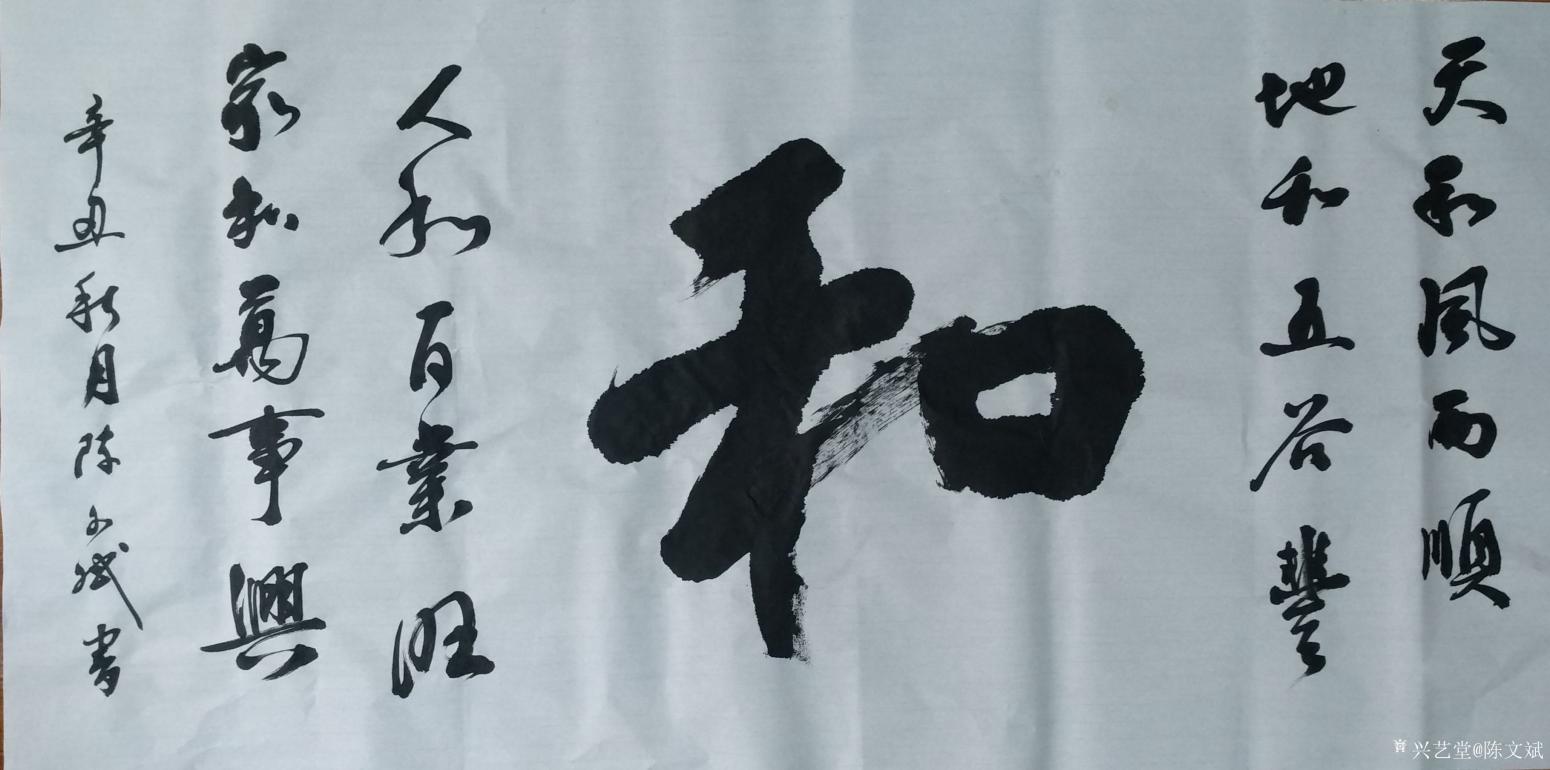 天和風雨順
地和五谷豐
和
人和百業旺
家和萬事興
辛丑秋月陈文斌書
兴艺堂@陈文斌